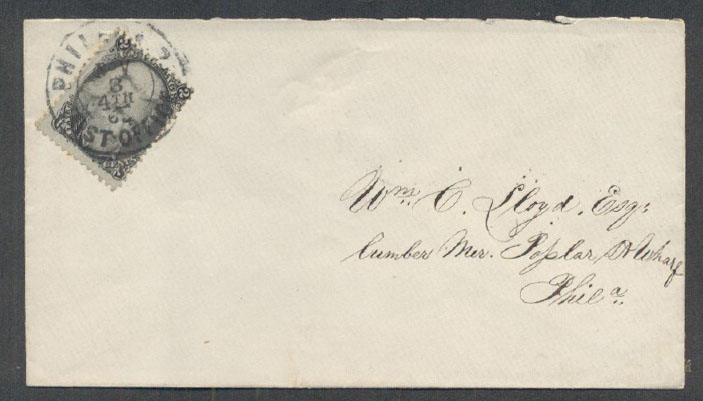 PHILAD'A
NOV
3
4TH
POST OFFICE
Wm. C. Lloyd, Esq:
lumber Mer. Poplar St Wharf
Phila.